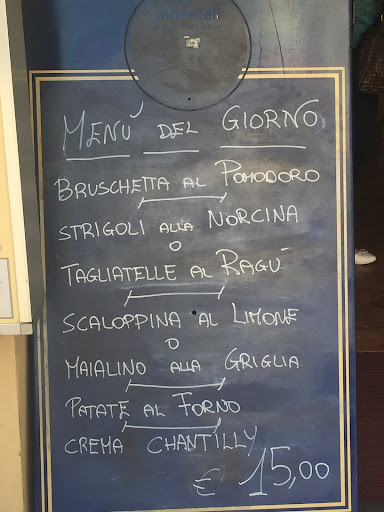 MENÙ DEL GIORNO
BRUSCHETTA AL POMODORO
STRIGOLI ALLA NORCINA
O
TAGLIATELLE AL RAGÙ
SCALOPPINA AL LIMONE
O
MAIALINO ALLA GRIGLIA
PATATE AL FORNO
CREMA CHANTILLY
€ 15,00